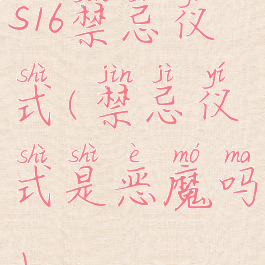 S16禁忌仪
shì jìn jì yí
式(禁忌仪
shì shì è mó ma
式是恶魔吗
)